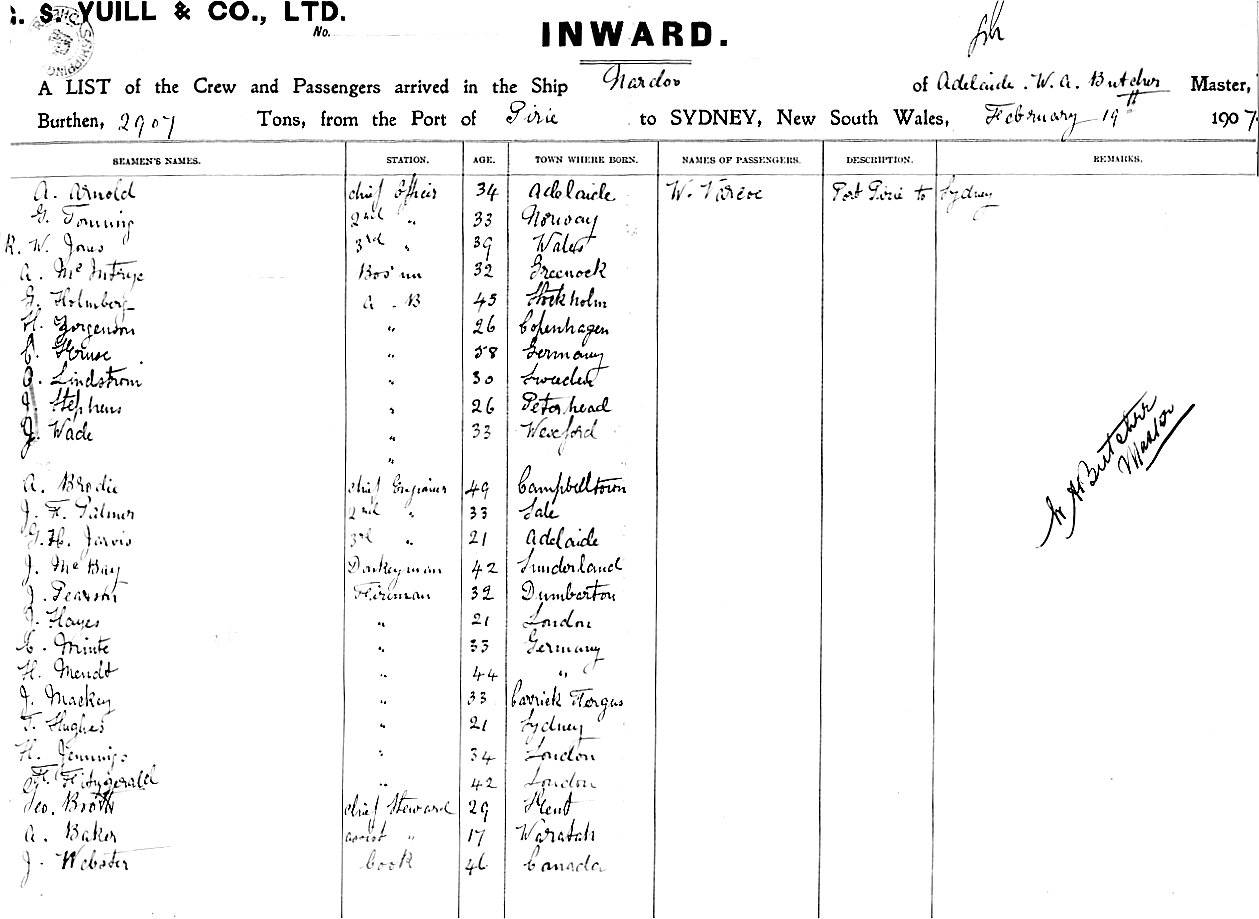 . S. YUILL & CO., LTD.
No.
INWARD.
A LIST of the Crew and Passengers arrived in the Ship Nardoo of Adelaide. W. A. Butcher Master,
Burthen, 2907 Tons, from the Port of Pirie to SYDNEY, New South Wales, February 19th 1907.
SEAMEN'S NAMES. STATION. AGE. TOWN WHERE BORN. NAMES OF PASSENGERS. DESCRIPTION. REMARKS.
A. Arnold chief Officer 34 Adelaide W. Port Pirie to Sydney
G. 2nd " 33 Norway
R. W. Jones 3rd " 39 Wales
A. McIntrye Bos'un 32 Greenock
G. Holmberg A. B 45 Stockholm
H. Jorgenson " 26 Copenhagen
C. " 58 Germany
O. Lindstrom " 30 Sweden
J. Stephens " 26 Peterhead
J. Wade " 33 Wexford
"
A. Brodie chief Engineer 49 Campbelltown
J. F. Palmer 2nd " 33 Sale
G. H. Jarvis 3rd " 21 Adelaide
J. McBay Donkeyman 42 Sunderland
J. Pearson Fireman 32 Dumbarton
J. Hayes " 21 London
E. Minte " 33 Germany
H. Mendt " 44 "
J. Mackey " 33 Carrick Fergus
T. Hughes " 21 Sydney
H. Jennings " 34 London
F. Fitzgerald " 42 London
Geo. Booth chief Steward 29 Kent
A. Baker assist " 17 Waratah
J. Webster Cook 46 Canada
W A Butcher
Master